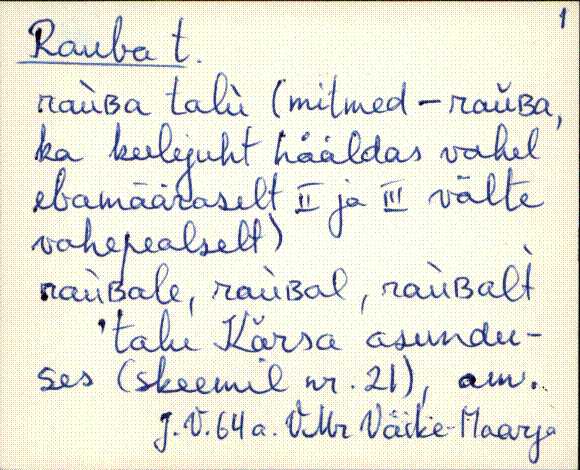 1
Rauba t.
raùʙa talù (mitmed – raŭʙa,
ka keelejuht hääldas vahel
ebamääraselt II ja III välte
vahepealselt)
raùʙale, raùʙal, raùʙalt̀
talu Kärsa asundu-
ses (skeemil nr. 21), am.
J.V. 64 a. VMr Väike-Maarja